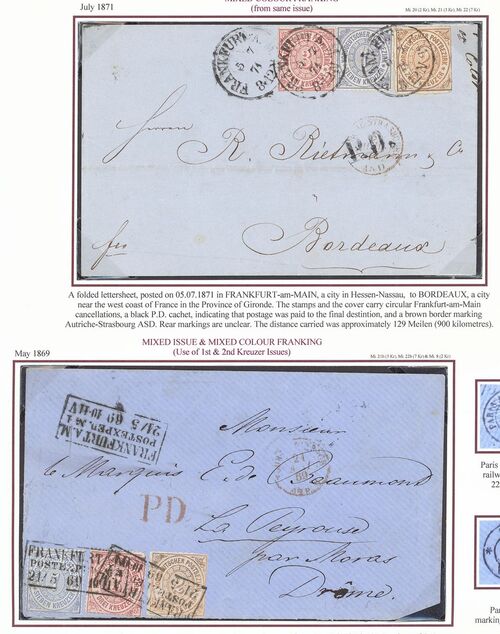 MIXED COLOUR FRANKING
July 1871
(from same issue)
Mi. 20 (2 Kr), Mi. 21 (3 Kr), Mi 22 (7 Kr)
FRANKFURT A.
5 7
71
Herrn
R. Rietmann & Co
P.D.
fco
Bordeaux
A folded lettersheet, posted on 05.07.1871 in FRANKFURT-am-MAIN, a city in Hessen-Nassau, to BORDEAUX, a city
near the west coast of France in the Province of Gironde. The stamps and the cover carry circular Frankfurt-am-Main
cancellations, a black P.D. cachet, indicating that postage was paid to the final destintion, and a brown border marking
Autriche-Strasbourg ASD. Rear markings are unclear. The distance carried was approximately 129 Meilen (900 kilometres).
MIXED ISSUE & MIXED COLOUR FRANKING
May 1869
(Use of 1st & 2nd Kreuzer Issues)
FRANKFURT A.M.
POSTEXPED. № 1
21/5 69 10-11V
Monsieur
le Marquis E. de Beaumont
PD
La Peyrouse
par Moras
Drôme
FRANKF
POSTEXP
21/5 69
Paris
railw
22
Pa
marking